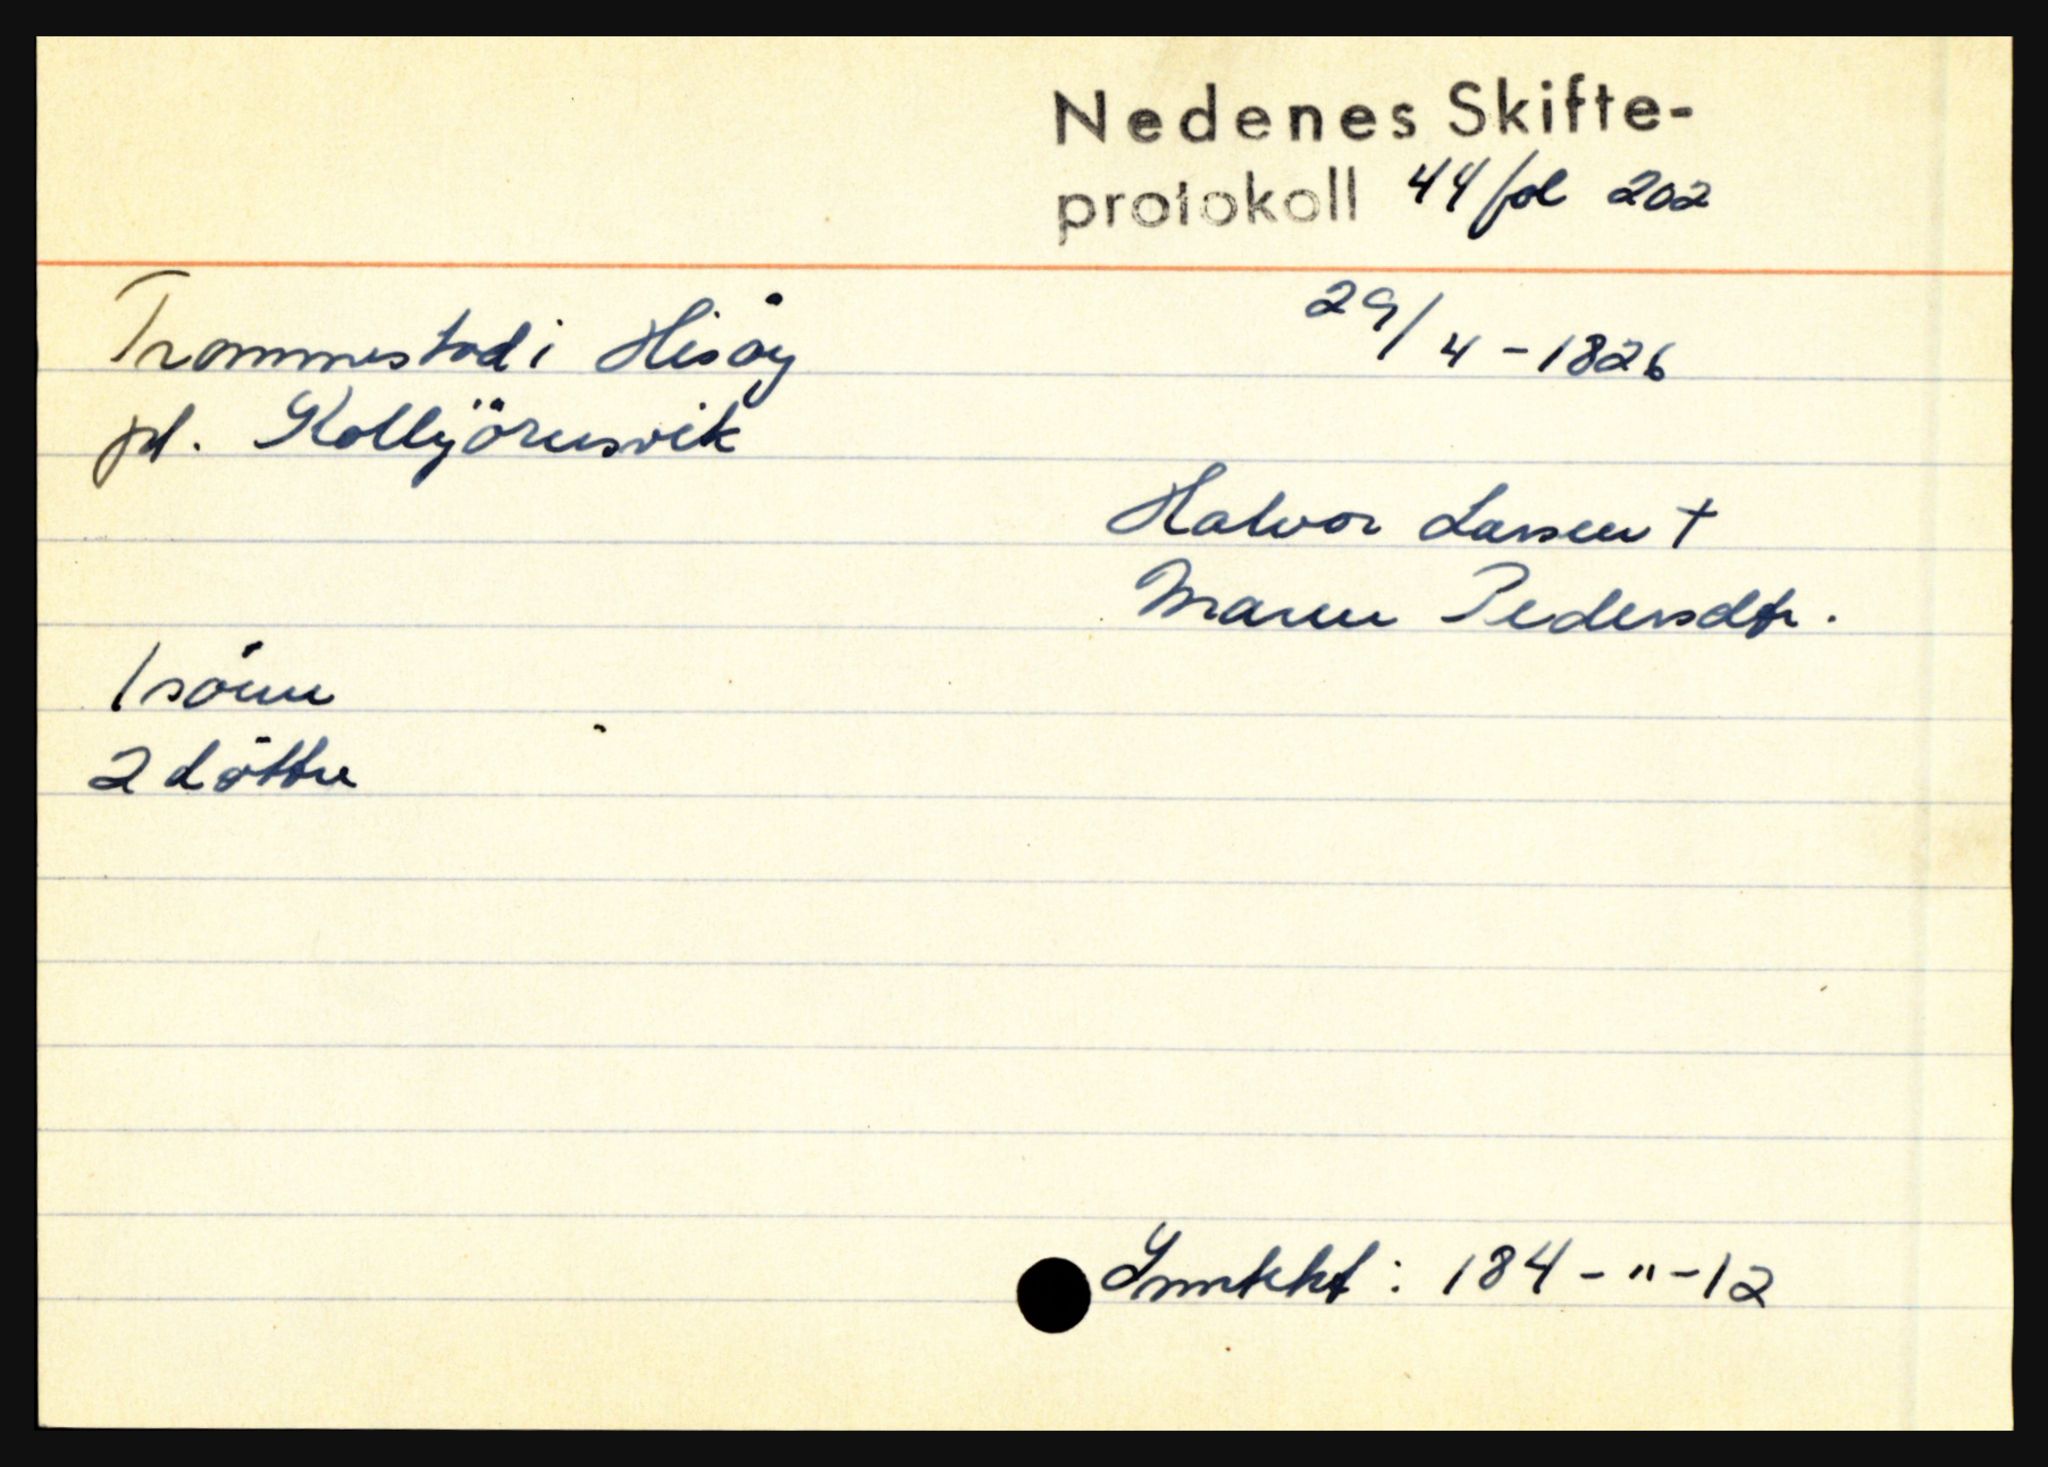 Nedenes Skifte-
protokoll 44 fol 202
Trommestad i Hisöy
29/4 - 1826
pl. Kolbjörnsvik
Halvor Larsen †
Maren Pedersdtr.
1 sönn
2 döttre
Inntekt: 184 - " - 12